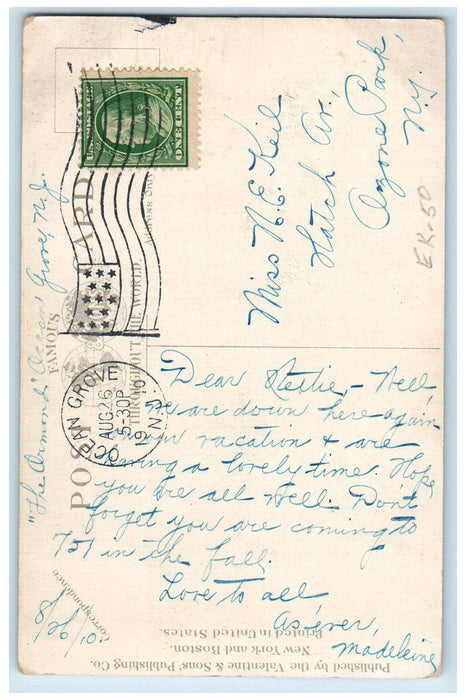 U.S. POSTAGE
ONE CENT
POST CARD
FAMOUS
THROUGHOUT THE WORLD
OCEAN GROVE
AUG 26
5-30P
N.J.
Miss N. E. Keil
Hatch Av.,
Ozone Park,
N.Y.
EK-50
"The Ormond" Ocean Grove, N.J.
Dear Nettie, - Well,
we are down here again
on our vacation & are
having a lovely time. Hope
you are all well. Don't
forget you are coming to
757 in the fall.
Love to all
As ever,
Madeleine
Correspondence
8/26/10
Published by the Valentine & Sons' Publishing Co.
New York and Boston.
Printed in United States.